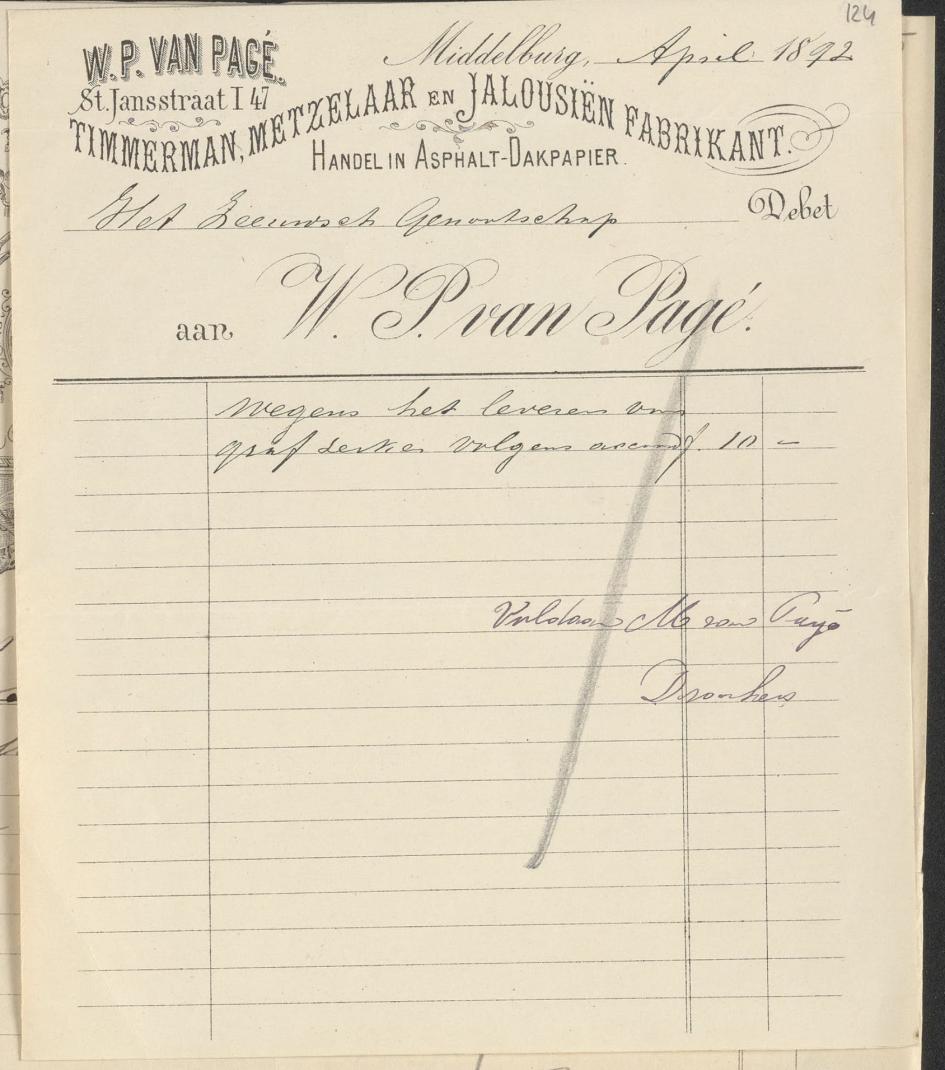 124
W. P. VAN PAGÉ.
Middelburg, April 1892
St. Jansstraat I 47
TIMMERMAN, METZELAAR EN JALOUSIËN FABRIKANT.
HANDEL IN ASPHALT-DAKPAPIER.
Het Zeeuwsch Genootschap Debet
aan W. P. van Pagé.
Wegens het leveren van
graf zerken volgens accoord f. 10 –
Voldaan M van Pagé